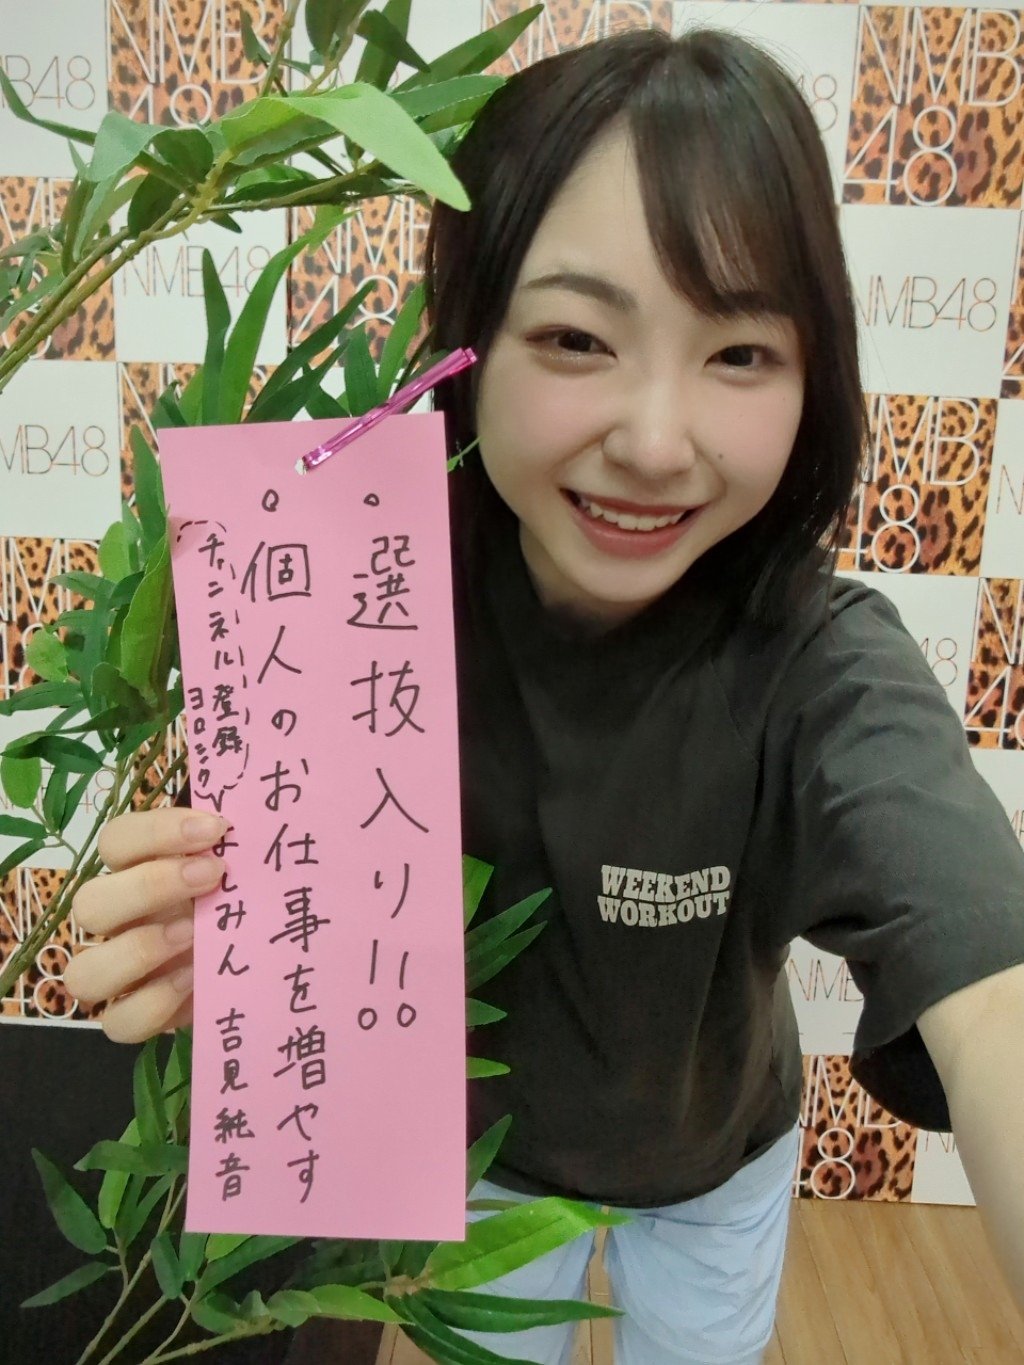 。選抜入り!!
。個人のお仕事を増やす
チャンネル登録
ヨロシク
よしみん 吉見純音
WEEKEND
WORKOUT
NMB48
NMB48
NMB
48
NMB48
NMB48
NMB
48
NMB48